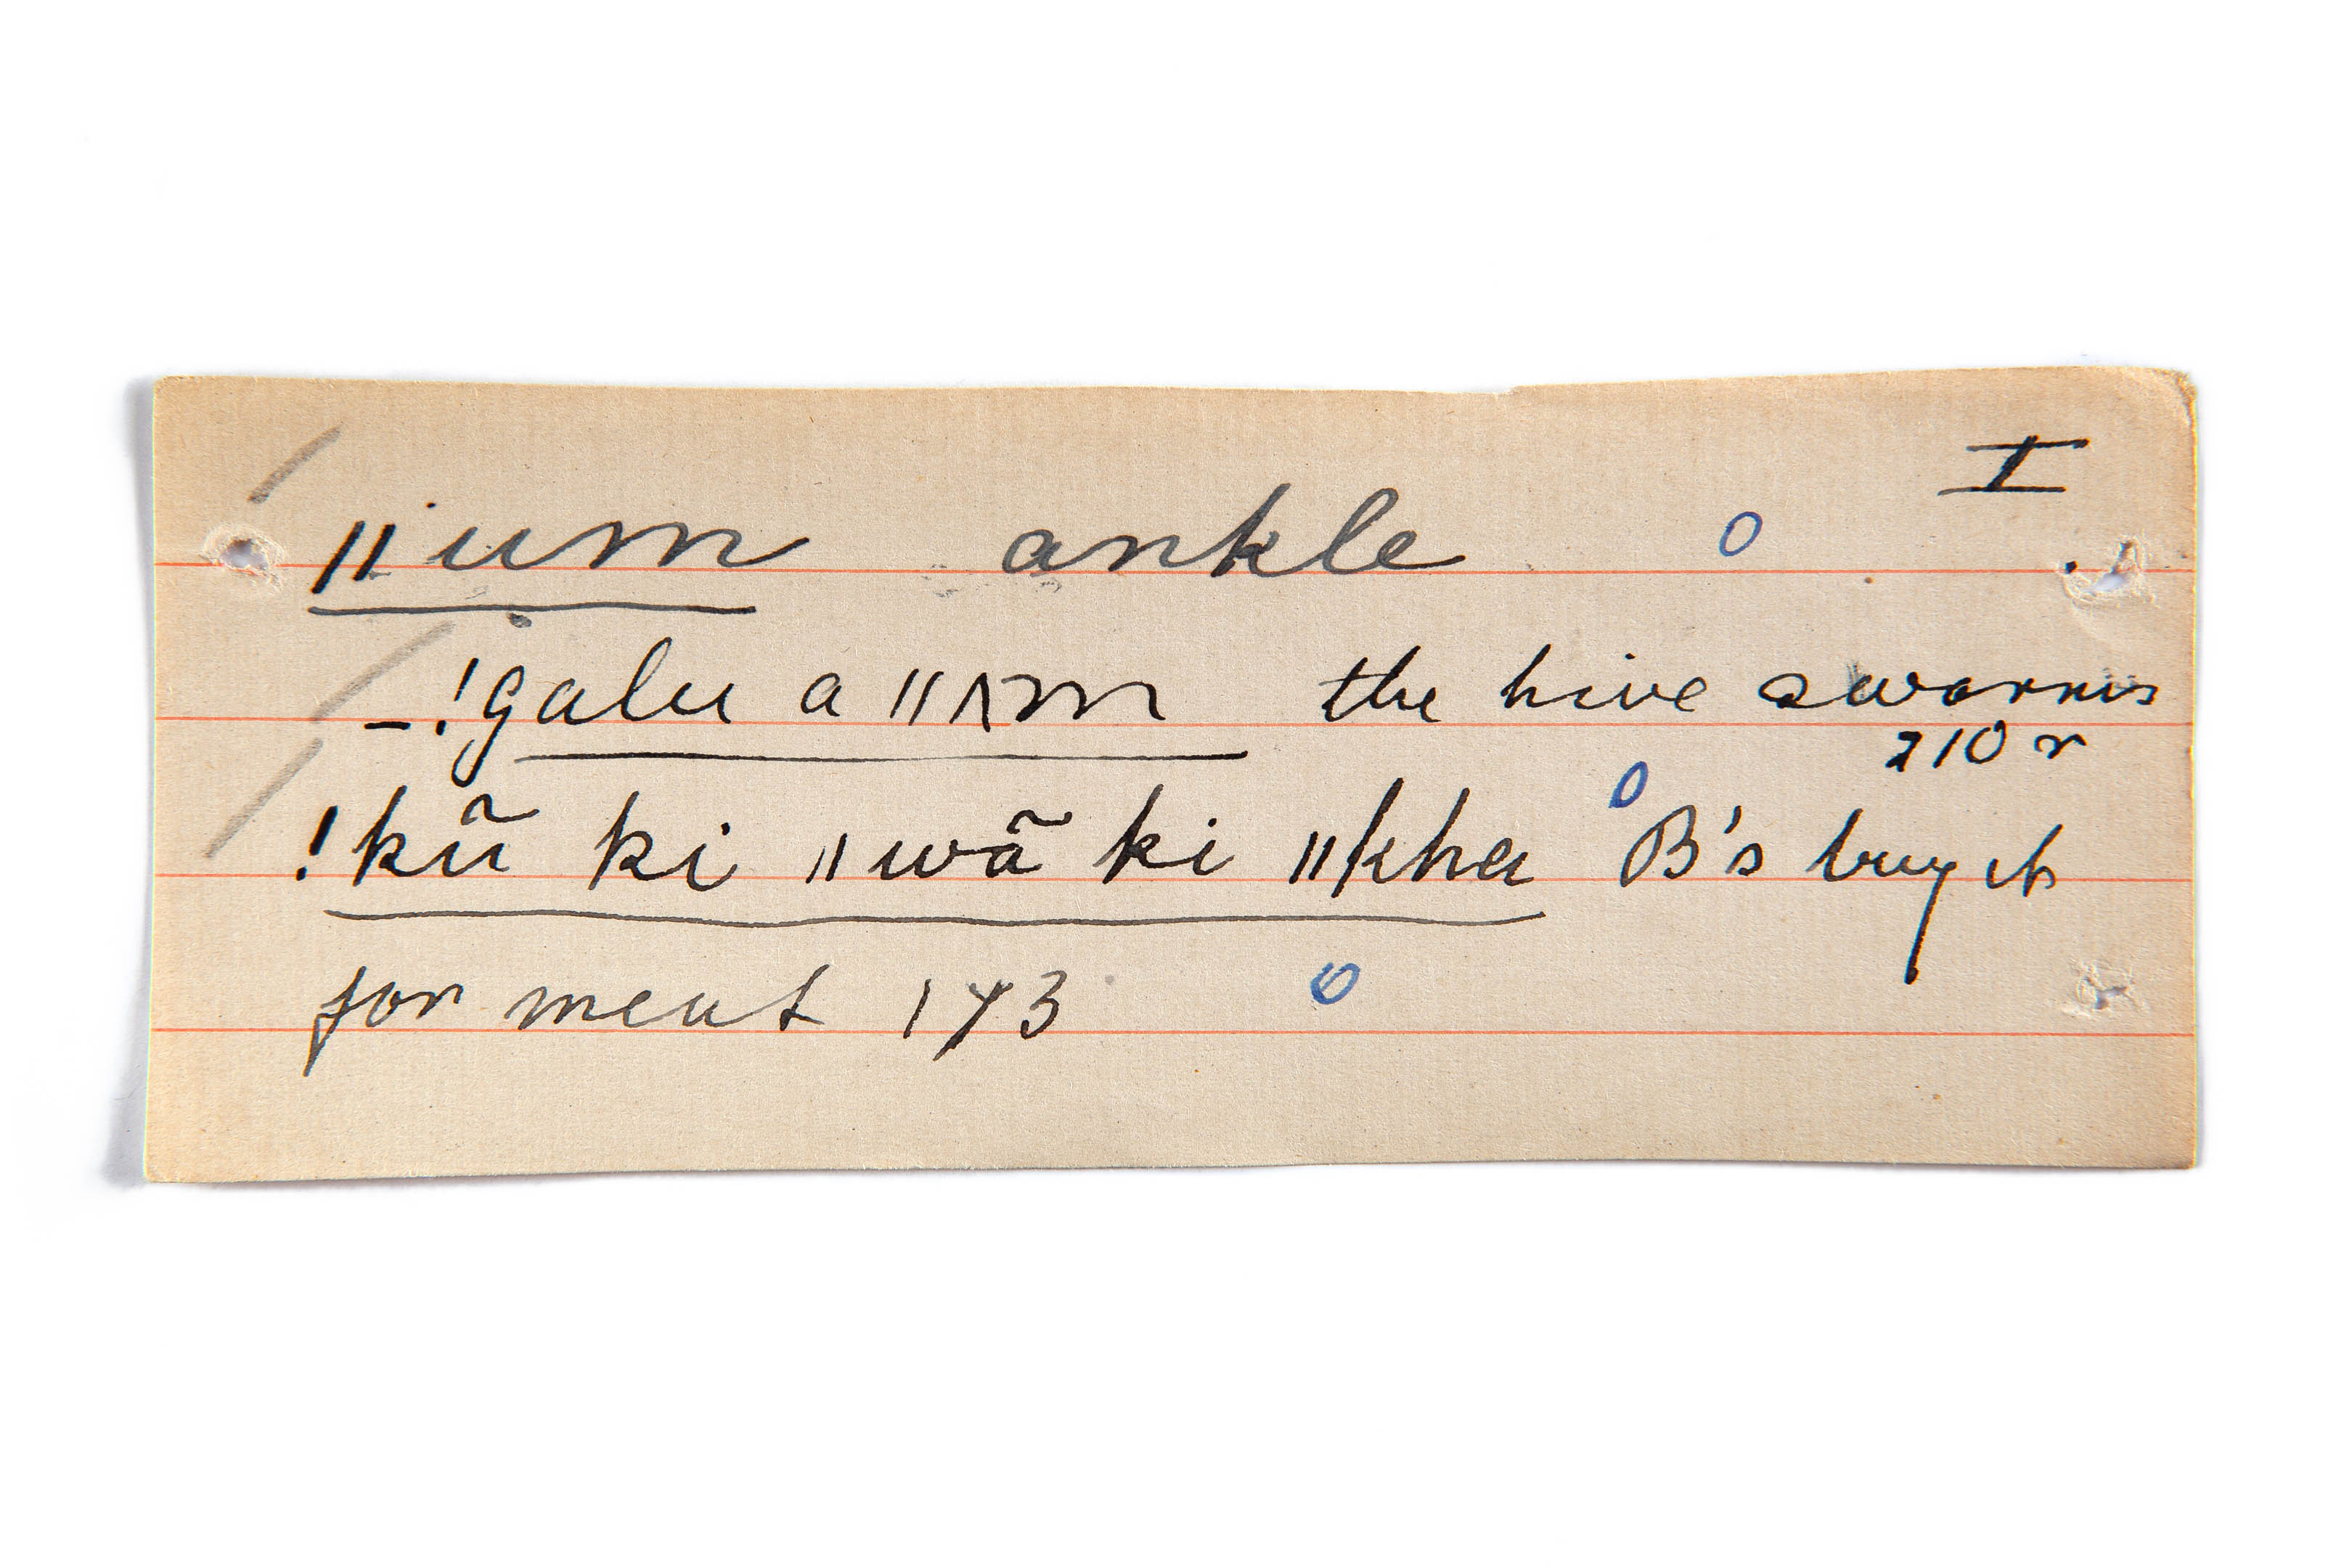 I
ǁum ankle o
– !galu a ǁʌm the hive swarms
210 r
!kũ ki ǁwã ki ǁkha B's buy it
for meat 173